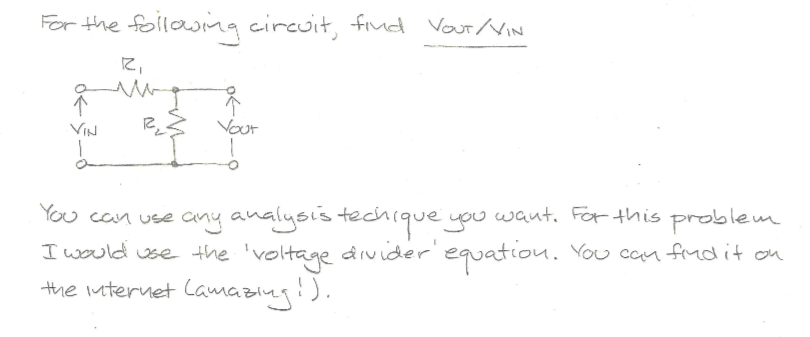 For the following circuit, find VOUT/VIN
R1
VIN
R2
VOUT
You can use any analysis techique you want. For this problem
I would use the 'voltage divider' equation. You can find it on
the internet (amazing!).